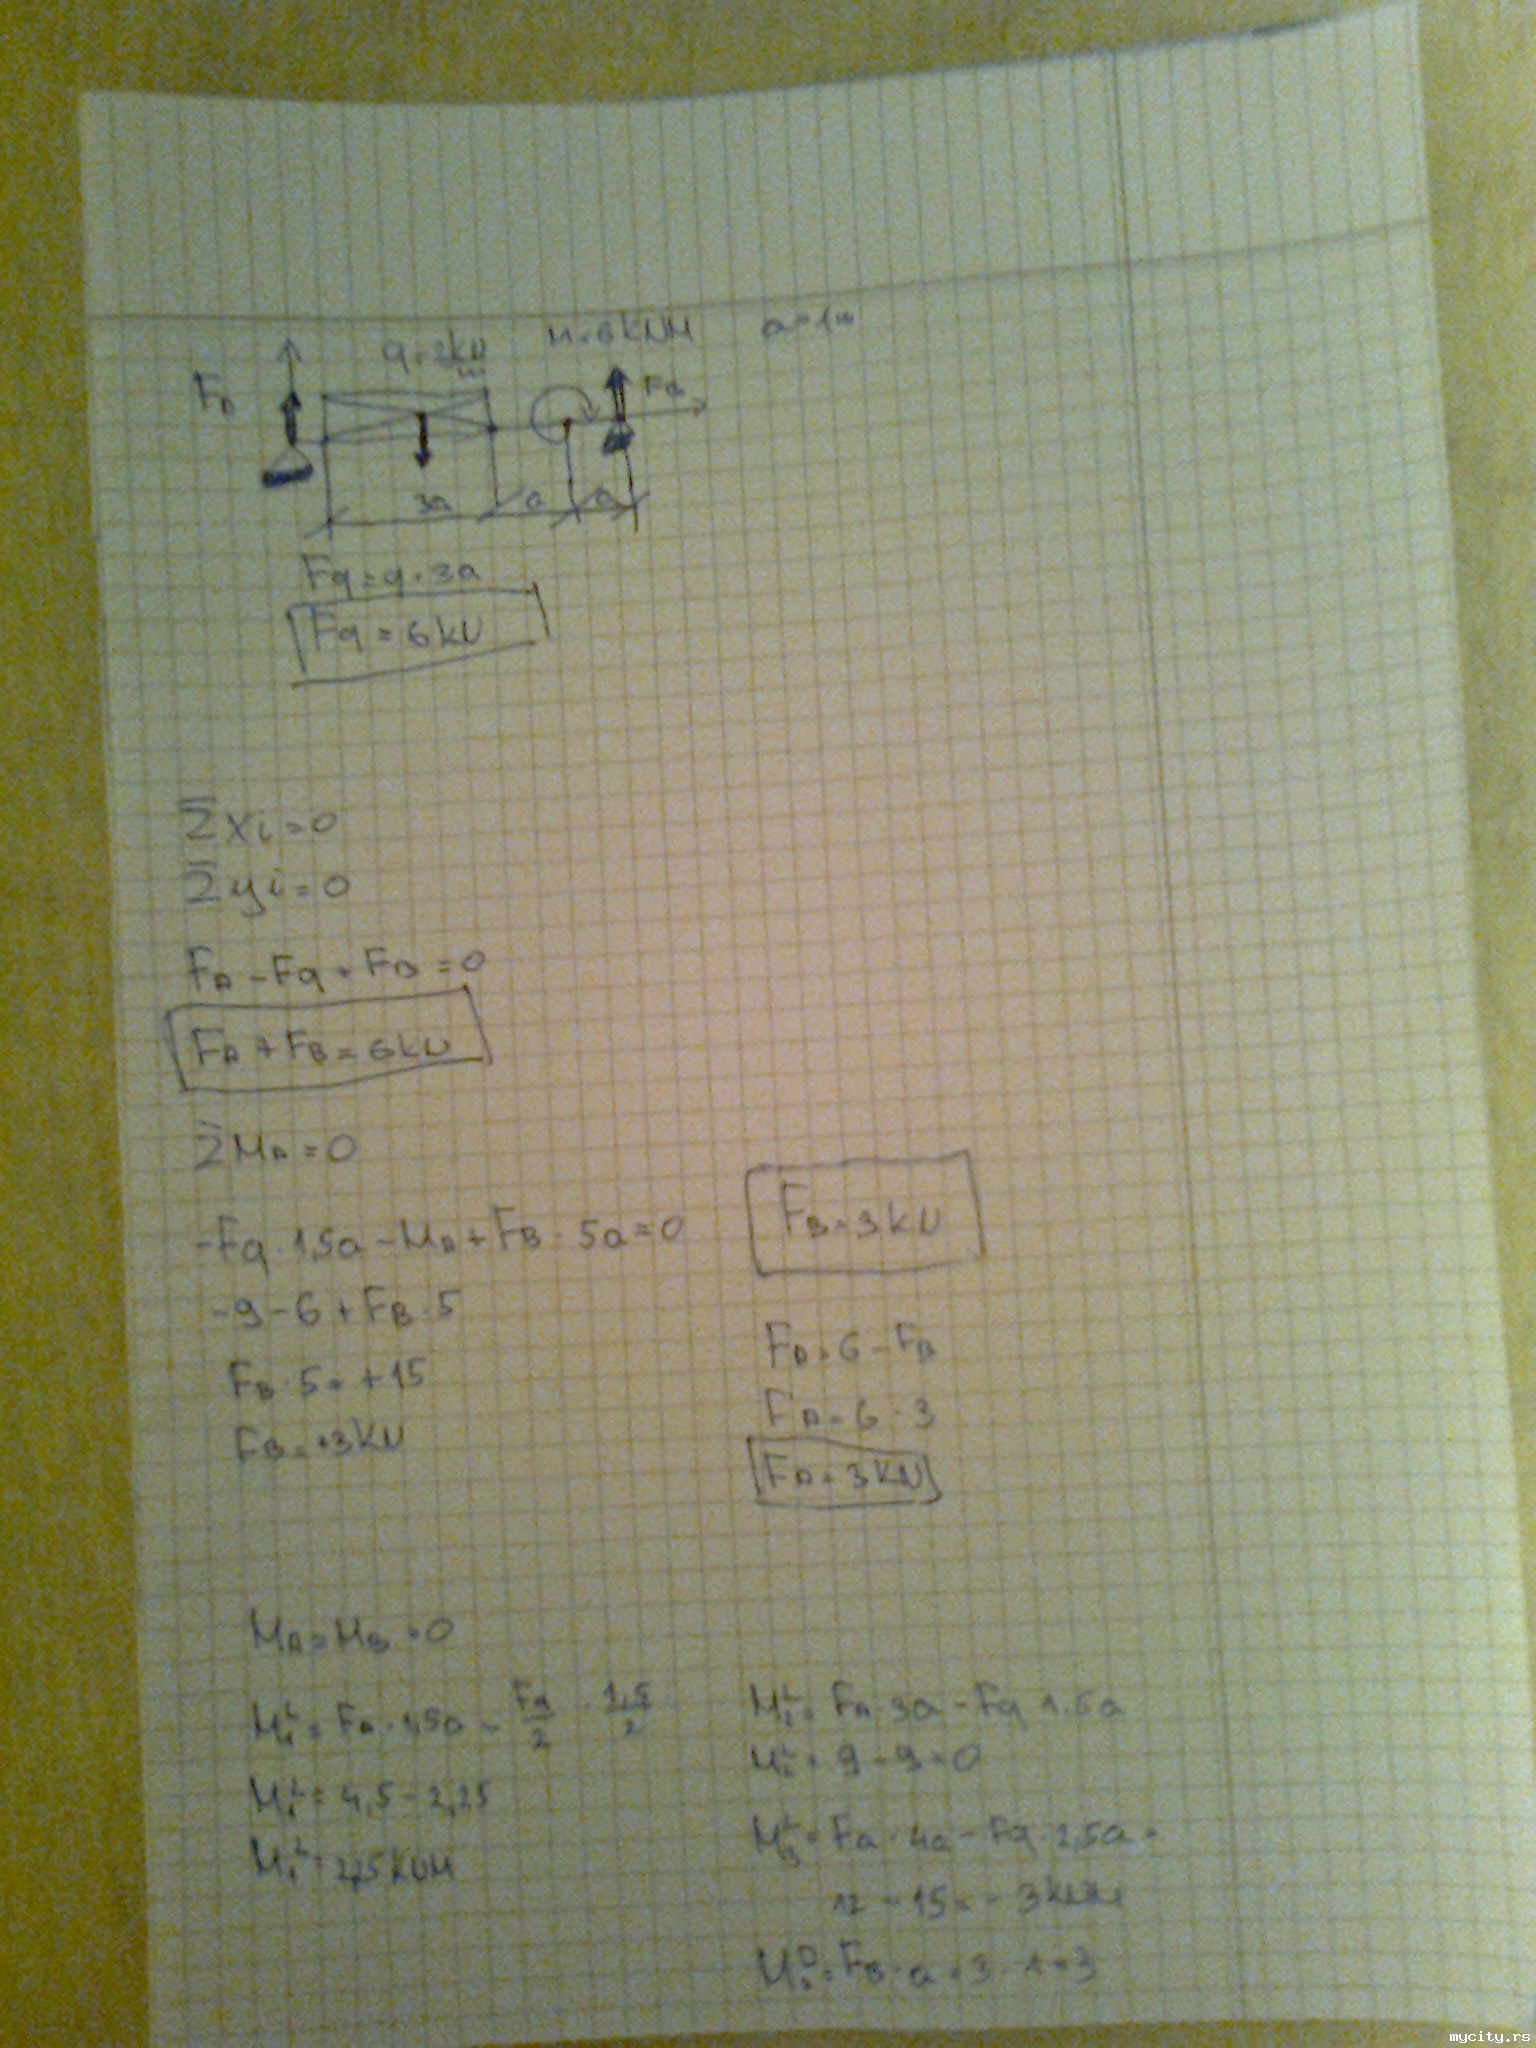 q=2kN/m M=6kNM a=1m
FA FB
3a a a
Fq=q·3a
Fq=6kN
Σxi=0
Σyi=0
FA-Fq+FB=0
FA+FB=6kN
ΣMA=0
-Fq·1,5a-MA+FB·5a=0
-9-6+FB·5
FB·5=+15
FB=+3kN
FB=3kN
FA=6-FB
FA=6-3
FA=3kN
MA=MB=0
M₁ᴸ=FA·1,5a-Fq/2·1,5/2
M₁ᴸ=4,5-2,25
M₁ᴸ=2,25kNM
M₂ᴸ=FA·3a-Fq·1,5a
M₂ᴸ=9-9=0
M₃ᴸ=FA·4a-Fq·2,5a=
12-15=-3kNM
M₃ᴰ=FB·a=3·1=3
mycity.rs